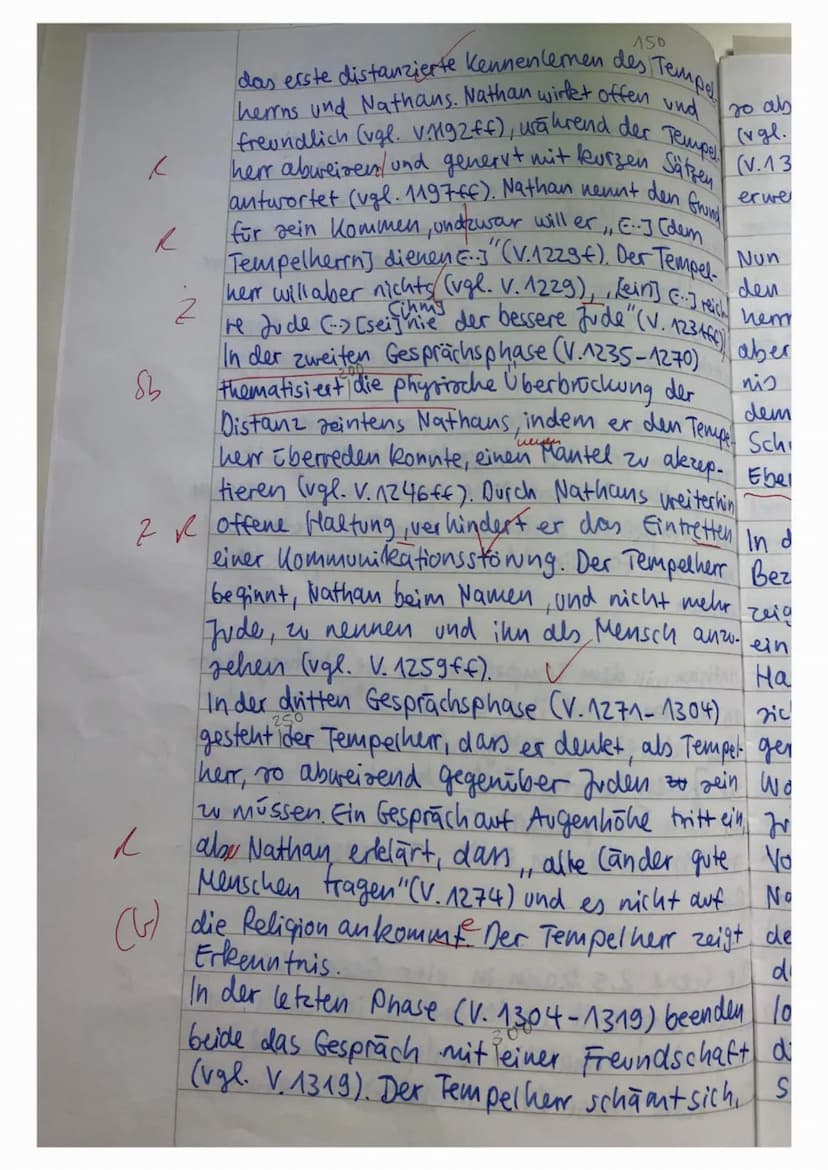 150
das erste distanzierte Kennenlernen des Tempel
herrns und Nathans. Nathan wirkt offen und
freundlich (vgl. V.1192ff), während der Tempel-
R herr abweisen und genervt mit kurzen Sätzen
antwortet (vgl. 1197ff). Nathan nennt den Grund
R für sein Kommen, undzwar will er „[...] [dem
Tempelherrn] dienen [...]" (V.1229f). Der Tempel-
herr will aber nichts (vgl. V. 1229), „[ein] [...] reich
[ihm]
Z re Jude [...] [sei] nie der bessere Jude" (V. 1234ff)
In der zweiten Gesprächsphase (V.1235-1270)
200
Sb thematisiert die physische Überbrückung der
Distanz seintens Nathans, indem er den Tempel
neuen
herr überreden konnte, einen Mantel zu akzep-
tieren (vgl. V. 1246ff). Durch Nathans weiterhin
Z R offene Haltung, verhindert er das Eintretten
einer Kommunikationsstörung. Der Tempelherr
beginnt, Nathan beim Namen, und nicht mehr
Jude, zu nennen und ihn als Mensch anzu-
sehen (vgl. V. 1259ff).
In der dritten Gesprächsphase (V.1271-1304)
250
gesteht der Tempelherr, dass er denkt, als Tempel-
herr, so abweisend gegenüber Juden sein
zu müssen. Ein Gespräch auf Augenhöhe tritt ein,
R als Nathan erklärt, dass „alle Länder gute
Menschen tragen" (V. 1274) und es nicht auf
e
(G) die Religion ankommt. Der Tempelherr zeigt
Erkenntnis.
In der letzten Phase (V. 1304-1319) beenden
300
beide das Gespräch mit einer Freundschaft
(vgl. V. 1319). Der Tempelherr schämt sich,
so ab
(vgl.
(V.13
erwe
Nun
den
herrn
aber
nis
dem
Sch
Eber
In d
Bez
zeig
ein
Ha
sic
ger
Wo
Ju
Vo
No
de
d
lo
d
S